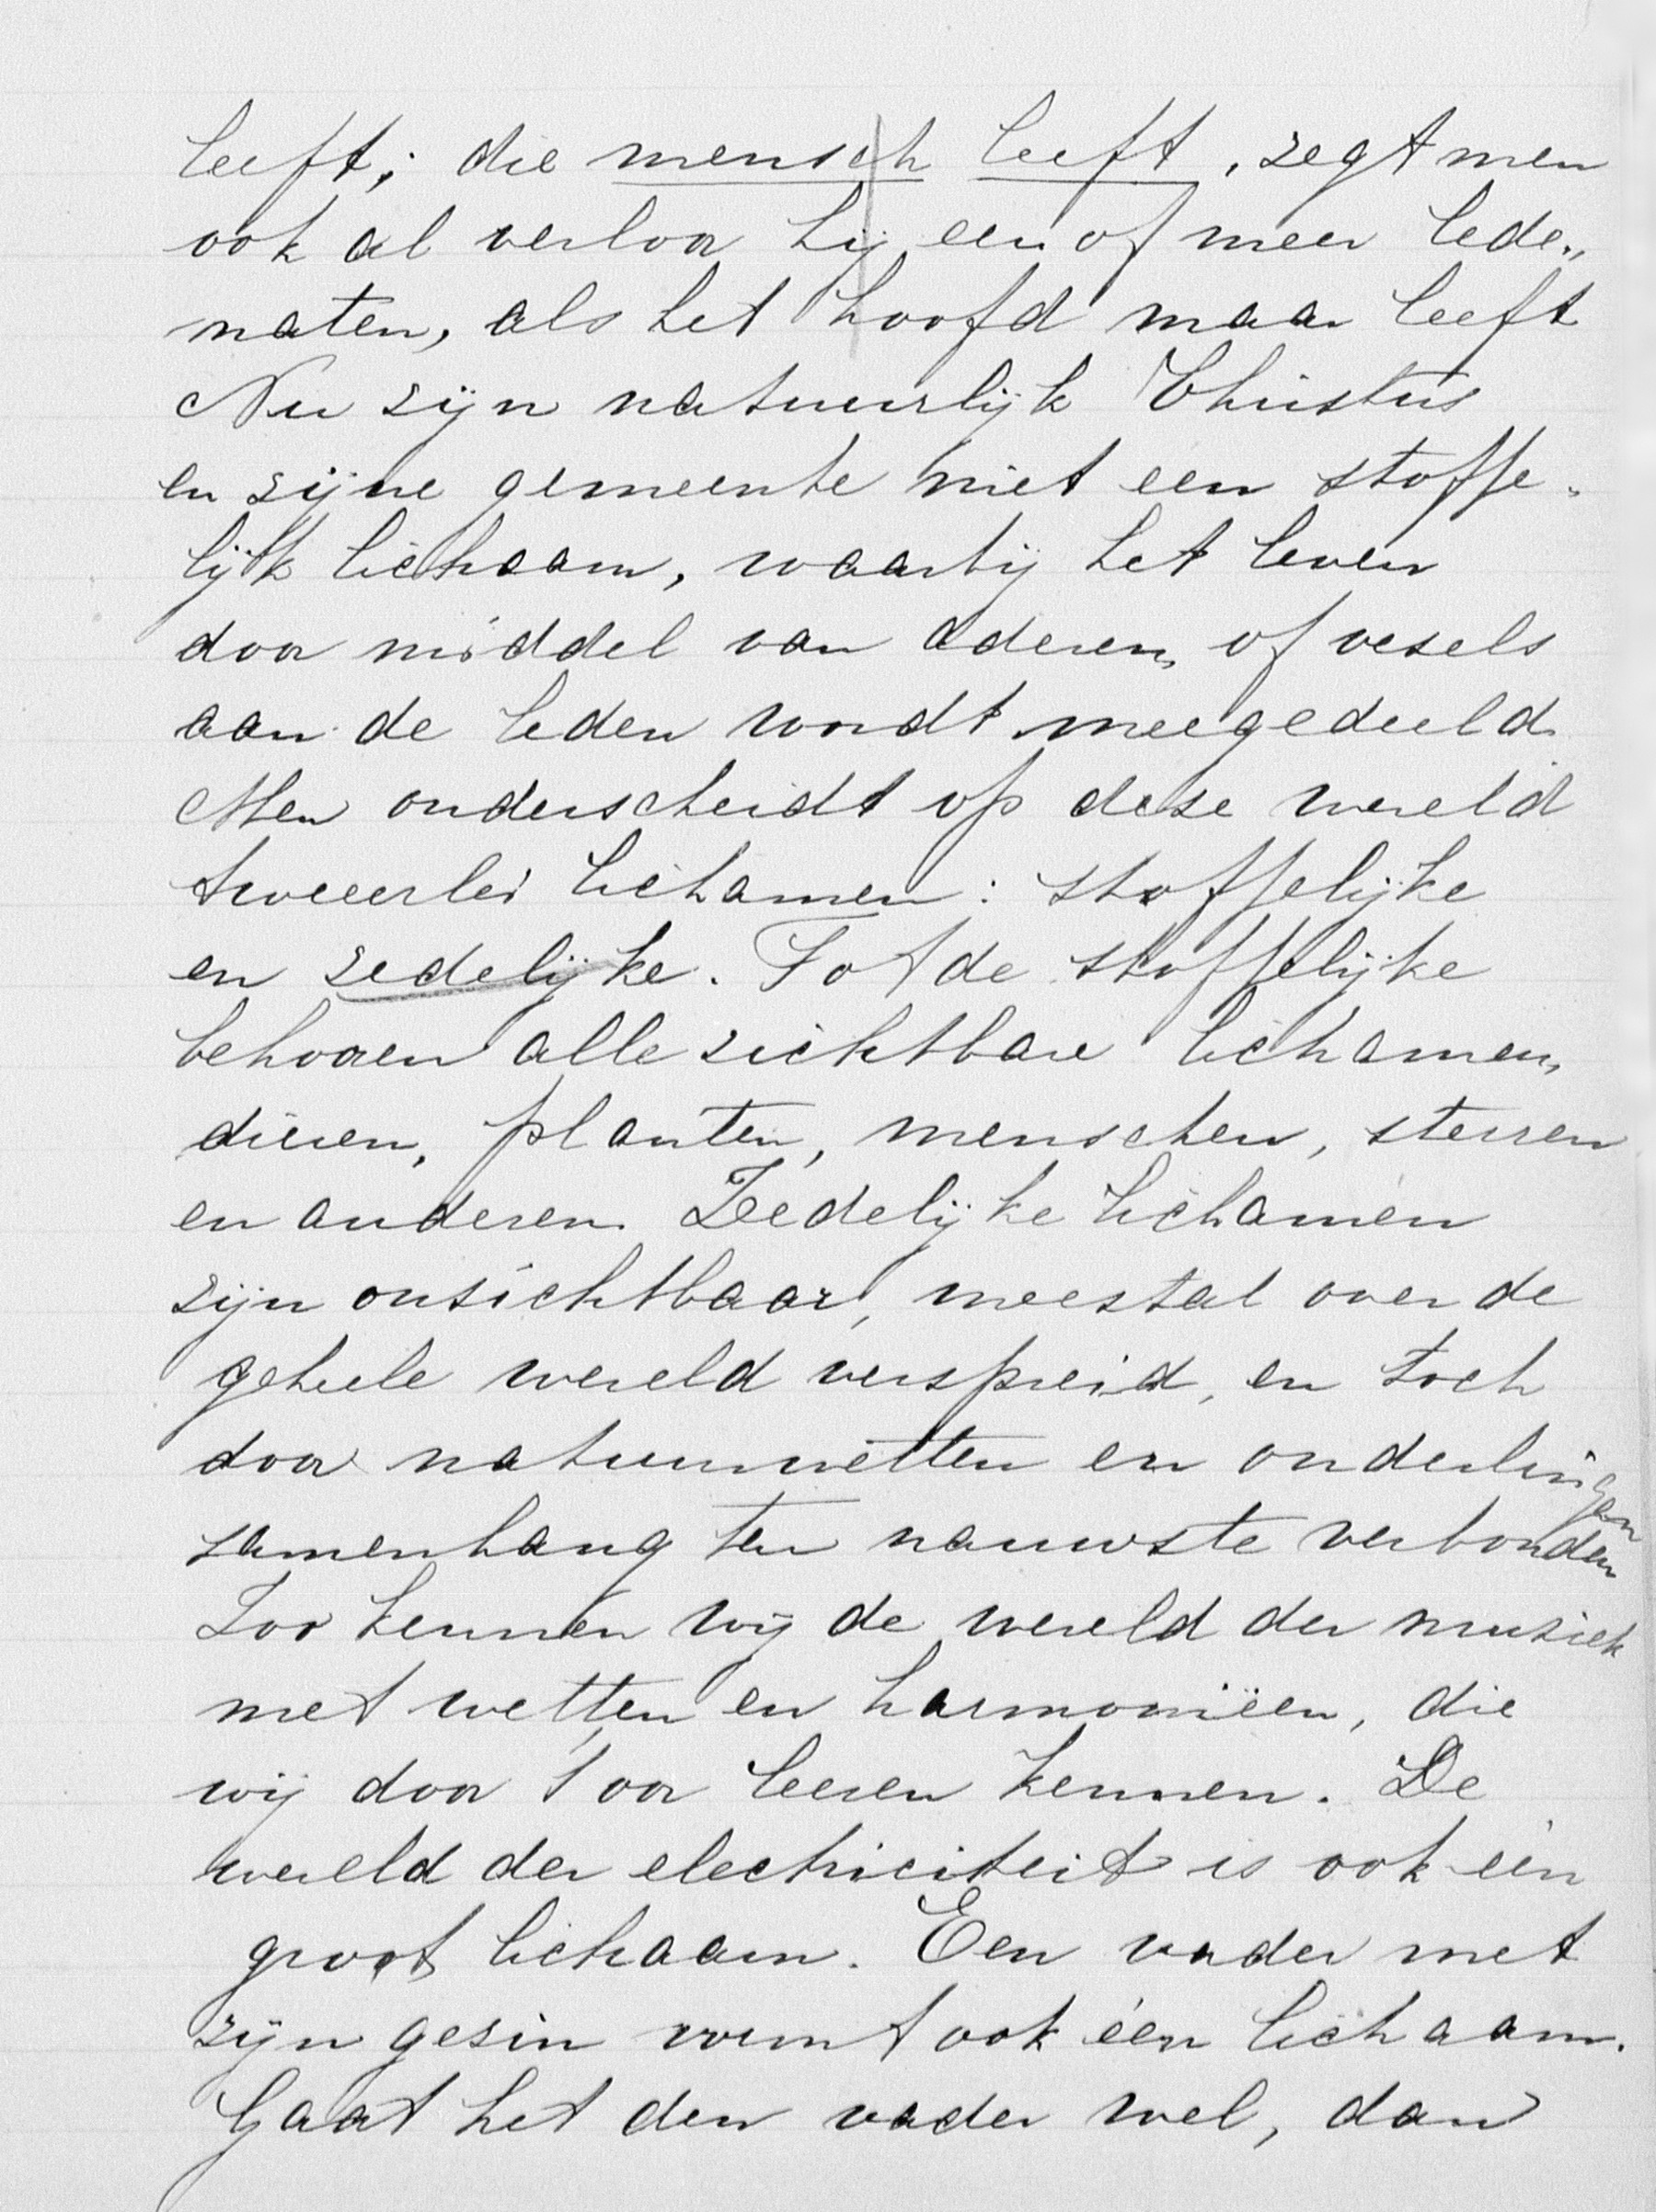 leeft; die mensch leeft, zegt men
ook al verloor hij een of meer lede„
maten, als het hoofd maar leeft
Nu zijn natuurlijk Christus
en zijne gemeente niet een stoffe„
lijk lichaam, waarbij het leven
door middel van aderen, of vezels
aan de leden wordt meegedeeld.
Men onderscheidt op deze wereld
tweeerlei lichamen: stoffelijke
en zedelijke. Tot de stoffelijke
behooren alle zichtbare lichamen,
dieren, planten, menschen, sterren
en anderen. Zedelijke lichamen
zijn onzichtbaar, meestal over de
geheele wereld verspreid, en toch
door natuurwetten en onderlingen
samenhang ten nauwste verbonden
Zoo kennen wij de wereld der muziek
met wetten en harmoniëen, die
wij door 't oor leeren kennen. De
wereld der electriciteit is ook één
groot lichaam. Een vader met
zijn gezin vormt ook één lichaam.
Gaat het den vader wel, dan